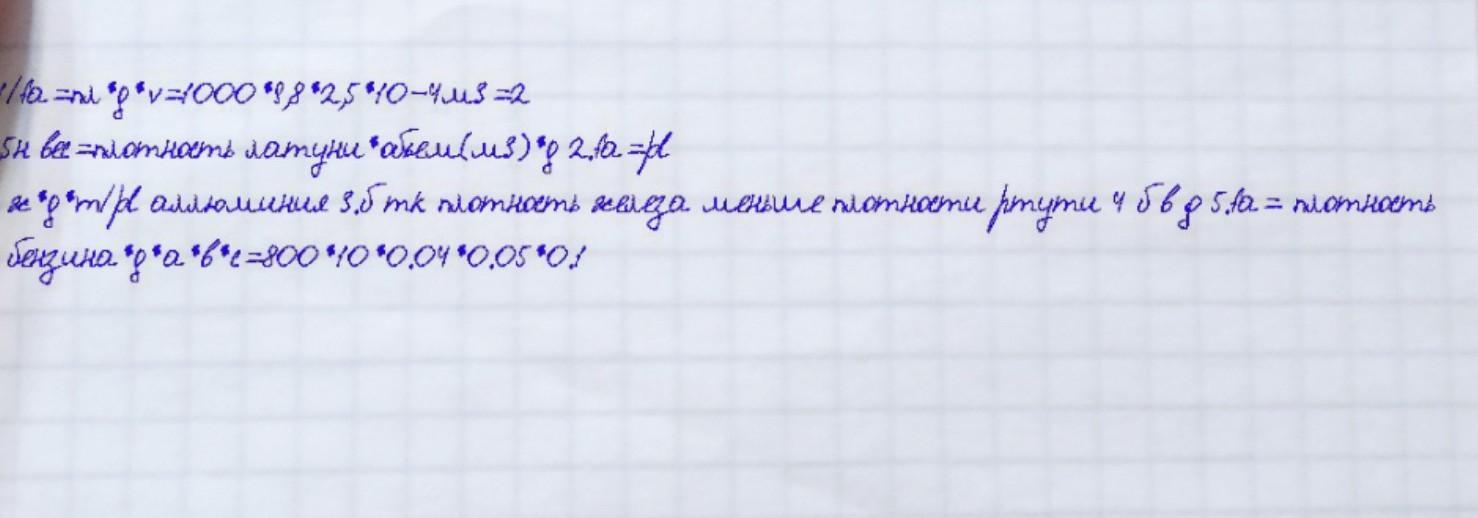 1/fa=пл*g*v=1000*9,8*2,5*10-4м3=2
5н вес=плотность латуни*абем(м3)*g 2.fa=pl
ж*g*m/pl аллюминия 3.б тк плотность железа меньше плотности ртути 4 б в д 5.fa= плотность
бензина*g*a*b*c=800*10*0.04*0.05*0.1